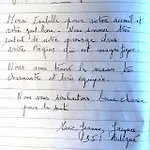 Merci Isabelle pour votre accueil et
votre gentillesse. Nous sommes très
contents de notre passage dans
votre région qui est magnifique.
Nous avons trouvé la maison très
charmante et bien équipée.
Nous vous souhaitons bonne chance
pour la suite
Jacques